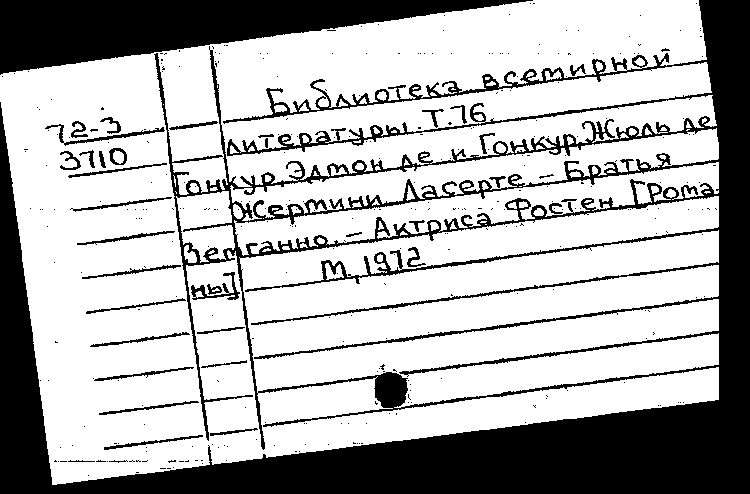 Библиотека всемирной
72-3
литературы. Т.76.
3710
Гонкур, Эдмон де и Гонкур, Жюль де
Жермини Ласерте. – Братья
Земганно. – Актриса Фостен. [Рома
ны]
М, 1972